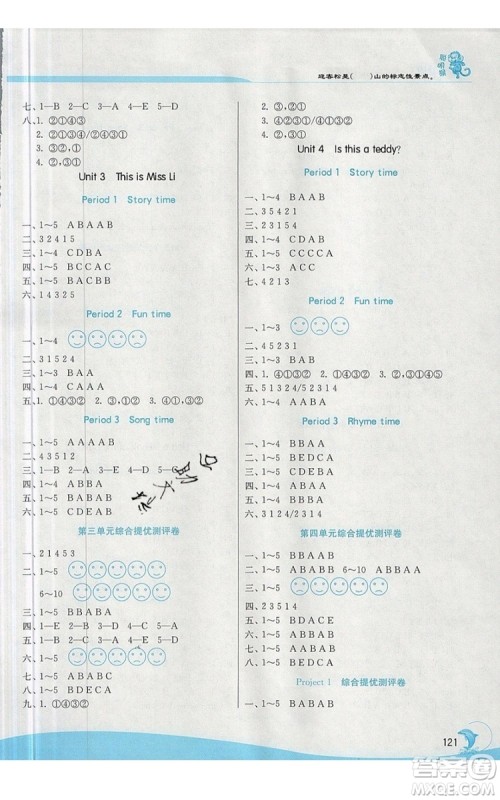 迎客松是(　　)山的标志性景点。
七、1—B 2—A 3—C 4—D
八、1. ②①④③
2. ②①③④
3. ③②,①
4. ②,③①
Unit 3 This is Miss Li
Period 1 Story time
一、1～5 ABAAB
二、32415
三、1～4 CDBA
四、1～5 BCCAC
五、1～5 BACBB
六、14325
Period 2 Fun time
一、1～4
二、31524
三、1～3 BBA
四、1～4 CAAA
五、1. ①④③② 2. ③,①② 3. ①④③②
Period 3 Song time
一、1～5 BABAA
二、43512
三、1—B 2—A 3—C 4—D 5—E
四、1～4 ABBA
五、1～5 BABAA
六、1～5 CDEAB
第三单元综合提优测评卷
一、21453
二、1～5
6～10
三、1～5 BBABA
四、1—B 2—A 3—C 4—E 5—D
五、1—E 2—C 3—A 4—B 5—D
六、1～5
七、1～5 ABABC
八、1～5 BDECA
九、1. ①④③②
2. ③,②①
3. ④①②③/①③②④
4. ②,③①
Unit 4 Is this a teddy?
Period 1 Story time
一、1～4 BAAB
二、35421
三、23154
四、1～4 ABBA
五、1～5 CCCCA
六、1～3 ACC
七、4213
Period 2 Fun time
一、1～3
二、45231
三、1～3 BAB
四、1. ①④③② 2. ②,③①④⑤
五、51324/51324
六、1～4 BABA
Period 3 Rhyme time
一、1～4 BBBA
二、1～5 BEDCA
三、1～4 ABBA
四、1～5 BAAAB
五、1～5 BEDCA
六、3124/2314
第四单元综合提优测评卷
一、1～5 BBAAA
二、1～5 ABABC 6～10 ABABA
三、1～5
四、23514
五、1～5 BDACE
六、1～5 ABBAB
七、1～5 BEDAC
八、1～5 BBABB
Project 1 综合提优测评卷
一、1～5 BABAB
121